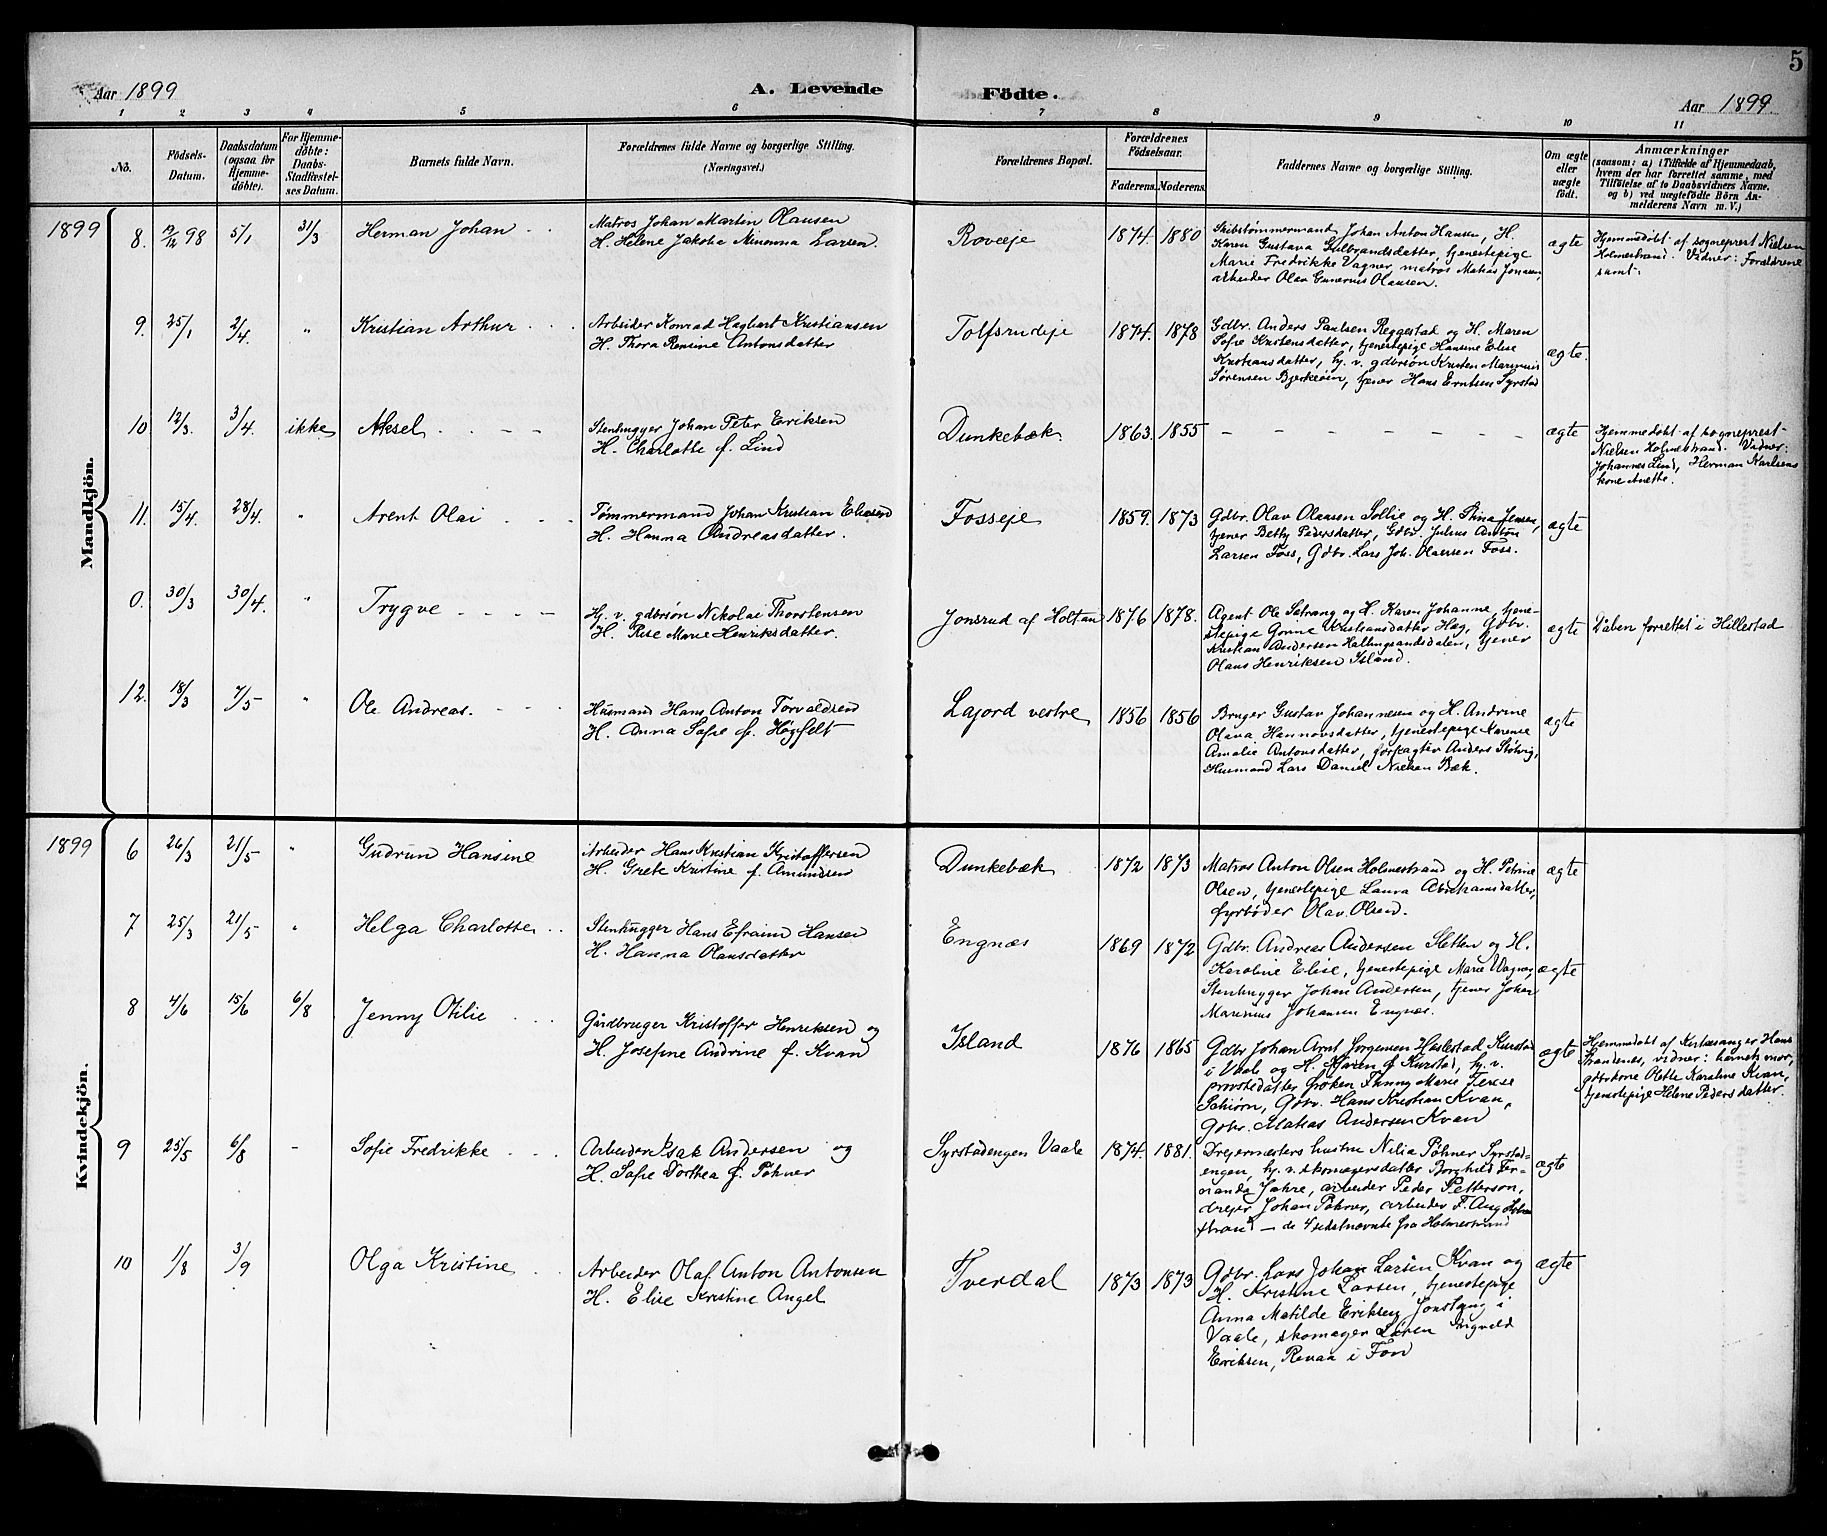 5
Aar 1899
A. Levende
Födte.
Aar 1899.
1 2 3 4 5 6 7 8 9 10 11
No.
Födsels-
Datum.
Daabsdatum
(ogsaa for
Hjemme-
döbte).
For Hjemme-
döbte:
Daabs-
Stadfæstel-
ses Datum.
Barnets fulde Navn.
Forældrenes fulde Navne og borgerlige Stilling.
(Næringsvei.)
Forældrenes Bopæl.
Forældrenes
Födselsaar.
Faderens. Moderens.
Faddernes Navne og borgerlige Stilling.
Om ægte
eller
uægte
födt.
Anmærkninger
(saasom: a) i Tilfælde af Hjemmedaab,
hvem der har forrettet samme, med
Tilföielse af to Daabsvidners Navne,
og b) ved uægtefödte Börn An-
melderens Navn m. V.)
Mandkjön.
1899
8. 98 5/1 31/3 Herman Johan
Matros Johan Martin Olausen
H. Helene Jakoba Larsen.
Rovæje
1874. 1880
Skibstømmermand Johan Anton Hansen, H.
Karen Gustava Gulbrandsdatter, tjenestepige
Marie Fredrikke Vagner, matros Matias Jensen,
arbeider Olav Gunerius Olausen.
ægte
Hjemmedøbt af sogneprest Nielsen
Holmestrand. Vidner: Forældrene
samt.
9. 25/1 2/4 " Kristian Arthur
Arbeider Konrad Hagbart Kristiansen
H. Thora Rensine Antonsdatter
Tolfsrudeje
1874. 1878
Gdbr. Anders Paulsen Reggestad og H. Maren
Sofie Kristensdatter, tjenestepige Hansine Elise
Kristiansdatter, hj. v. gdbrsøn Kristen Marinius
Sørensen Bjerkeøen, tjener Hans Erntsen Syrstad
ægte.
10 12/3. 3/4. ikke Aksel
Stenhugger Johan Peter Eriksen
H. Charlotte f. Lind
Dunkebæk
1863. 1855
ægte
Hjemmedøbt af sogneprest
Nielsen Holmestrand. Vidner:
Johannes Lind, Herman Karlsens
kone Anette.
11. 15/4. 28/4. " Arent Olai
Tømmermand Johan Kristian Eliasen
H. Hanna Andreasdatter.
Fosseje
1859. 1873
Gdbr. Olav Olausen Sollie og H. Stina Jensen,
tjener Betty Pedersdatter, Gdbr. Julius Anton
Larsen Foss, Gdbr. Lars Joh. Olaussen Foss.
ægte
0. 30/3 30/4. " Trygve
Hj. v. gdbrsøn Nikolai Thorstensen
H. Rise Marie Henriksdatter.
Jonsrud af Holtan
1876 1878.
Agent Ole Satrang og H. Karen Johanne, tjene-
stepige Gonne Kristiansdatter Hag, Gdbr.
Kristian Andersen Hallingsandsdalen, tjener
Olaus Henriksen Island.
ægte
Dåben forrettet i Hillestad
12. 18/3 7/5 " Ole Andreas.
Husmand Hans Anton Torvaldsen
H. Anna Sofie f. Högfelt
Lajord vestre
1856 1856
Bruger Gustav Johannesen og H. Andrine
Oliva Hannovsdatter, tjenestepige Karense
Amalie Antonsdatter, forpagter Anders Støtvig,
Husmand Lars Daniel Nielsen Bæk.
ægte
Kvindekjön.
1899
6 26/3 21/5 " Gudrun Hansine
Arbeider Hans Kristian Kristoffersen
H. Grete Kristine f. Amundsen
Dunkebæk
1872 1873
Matros Anton Olsen Holmestrand og H. Petrine
Olsen, tjenestepige Laura Abrahamsdatter,
fyrbøder Olav Olsen.
ægte
7 25/3 21/5 " Helga Charlotte
Stenhugger Hans Efraim Hansen
H. Hanna Olausdatter
Engnæs
1869 1872
Gdbr. Andreas Andersen Sletten og H.
Karoline Elise, tjenestepige Marie Wagner,
Stenhugger Johan Andersen, tjener Johan
Marinius Johansen Engnæs.
ægte
8 4/6 15/6 6/8 Jenny Otilie
Gårdbruger Kristoffer Henriksen og
H. Josefine Andrine f. Kvan
Island
1876 1865
Gdbr. Johan Arnt Jørgensen Haslestad Kurstad
i Vaale og H. Maren f. Kurstad, hj. v.
provstedatter frøken Fanny Marie Terese
Schiørn, Gdbr. Hans Kristian Kvan,
Gdbr. Matias Andersen Kvan
ægte
Hjemmedøbt af Kirkesanger Hans
Strandenæs, vidner: barnets mor,
gdbrkone Olette Karoline Kvan,
tjenestepige Helene Pedersdatter.
9 25/5 6/8 - Sofie Fredrikke
Arbeider Isak Andersen og
H. Sofie Dorthea f. Pöhner
Syrstadengen Vaale
1874. 1881.
Drejermesters hustru Nilia Pöhner Syrstad-
engen, hj. v. skomagersdatter Borghild Fer-
nanda Jahre, arbeider Peder Petterson,
drejer Johan Pöhner, arbeider F. Aug Holme
strand — de 4 sidstnævnte fra Holmestrand
ægte
10 1/8 3/9 Olga Kristine
Arbeider Olaf Anton Antonsen
H. Elise Kristine Angel
Tverdal
1873 1873
Gdbr. Lars Johan Larsen Kvan og
H. Kristine Larsen, tjenestepige
Anna Matilde Eriksen Jonslang i
Vaale, skomager Søren Ingvald
Eriksen, Revaa i Fon
ægte